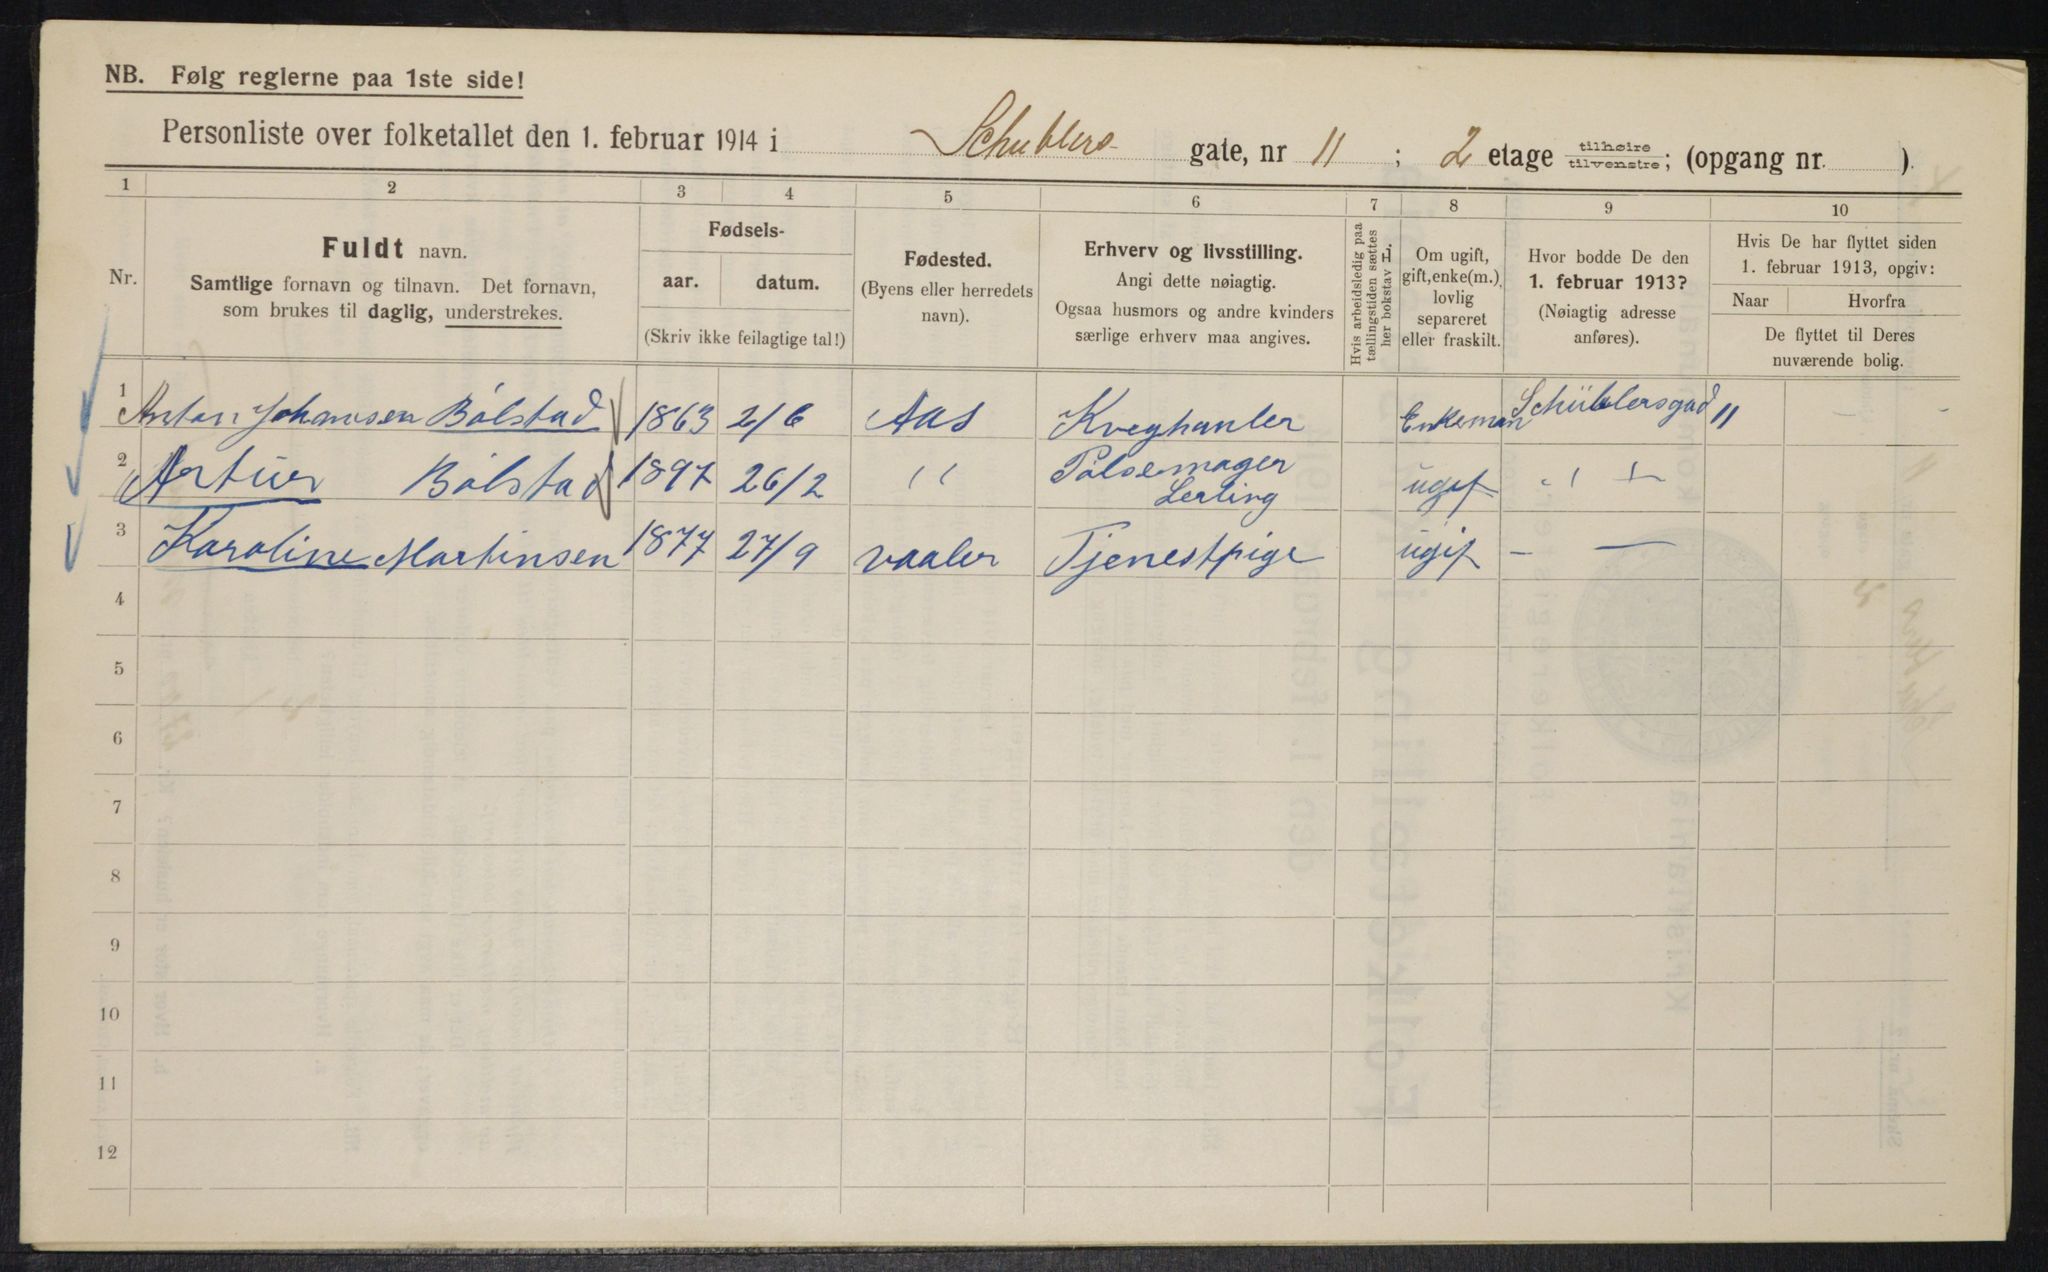 NB. Følg reglerne paa 1ste side!
Personliste over folketallet den 1. februar 1914 i Schublers gate, nr 11 ; 2 etage tilhøire tilvenstre; (opgang nr. ).
1 2 3 4 5 6 7 8 9 10
Nr.
Fuldt navn.
Samtlige fornavn og tilnavn. Det fornavn,
som brukes til daglig, understrekes.
Fødsels-
aar. datum.
(Skriv ikke feilagtige tal!)
Fødested.
(Byens eller herredets
navn).
Erhverv og livsstilling.
Angi dette nøiagtig.
Ogsaa husmors og andre kvinders
særlige erhverv maa angives.
Hvis arbeidsledig paa
tællingstiden sættes
her bokstav L.
Om ugift,
gift, enke(m.),
lovlig
separeret
eller fraskilt.
Hvor bodde De den
1. februar 1913?
(Nøiagtig adresse
anføres).
Hvis De har flyttet siden
1. februar 1913, opgiv:
Naar Hvorfra
De flyttet til Deres
nuværende bolig.
1 Anton Johansen Bólstad 1863 2/6 Aas Kveghanler Enkeman Schüblersgad 11
2 Artúer Bólstad 1897 26/2 " Pólsemager Lerling ugif "
3 Karoline Martinsen 1877 27/9 vaaler Tjenestpige ugif — —
4
5
6
7
8
9
10
11
12